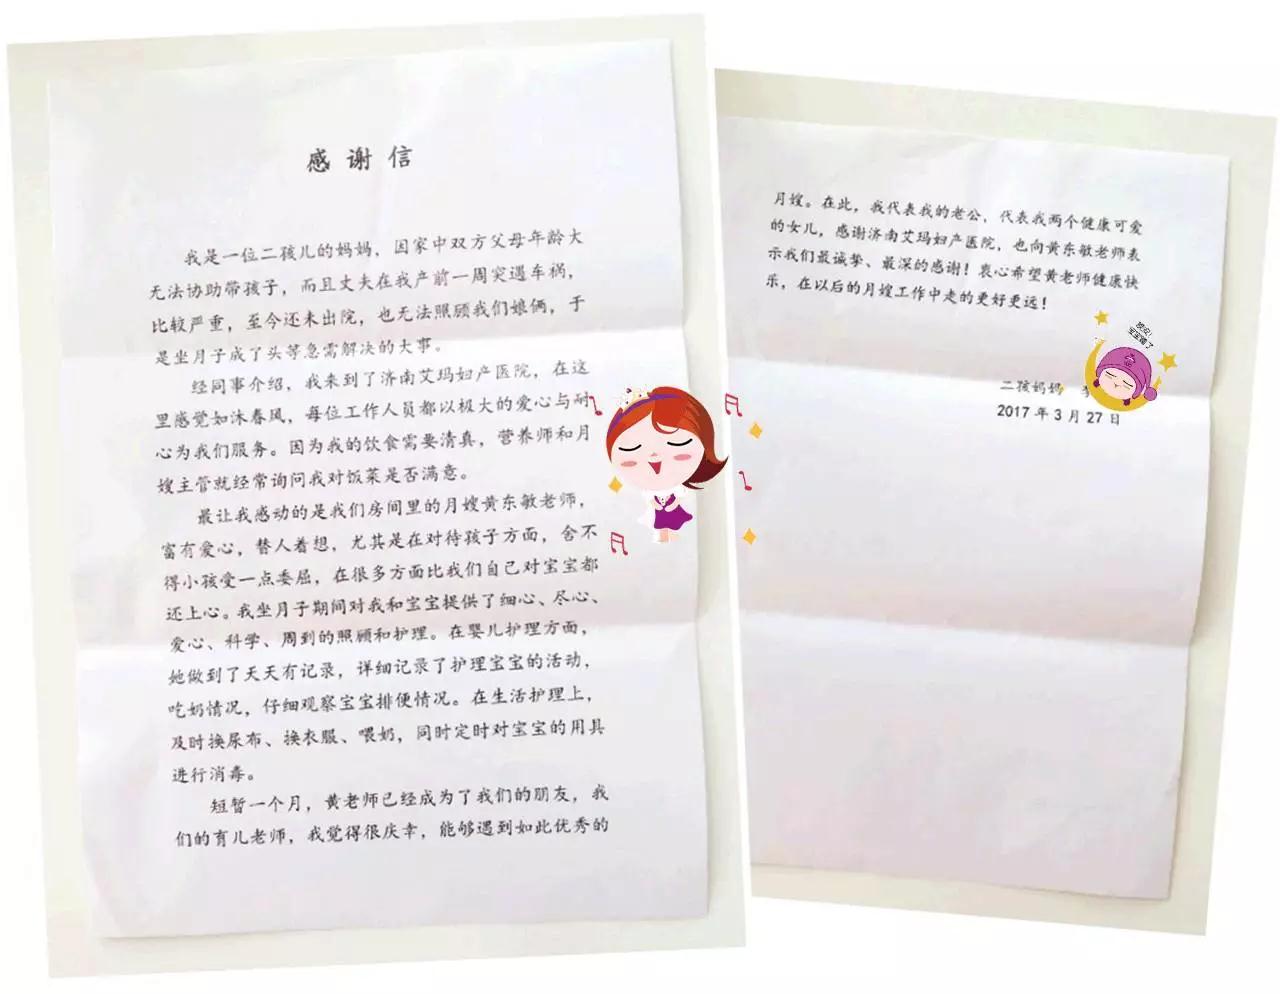 感谢信
我是一位二孩儿的妈妈，因家中双方父母年龄大
无法协助带孩子，而且丈夫在我产前一周突遇车祸，
比较严重，至今还未出院，也无法照顾我们娘俩，于
是坐月子成了头等急需解决的大事。
经同事介绍，我来到了济南艾玛妇产医院，在这
里感觉如沐春风，每位工作人员都以极大的爱心与耐
心为我们服务。因为我的饮食需要清真，营养师和月
嫂主管就经常询问我对饭菜是否满意。
最让我感动的是我们房间里的月嫂黄东敏老师，
富有爱心，替人着想，尤其是在对待孩子方面，舍不
得小孩受一点委屈，在很多方面比我们自己对宝宝都
还上心。我坐月子期间对我和宝宝提供了细心、尽心、
爱心、科学、周到的照顾和护理。在婴儿护理方面，
她做到了天天有记录，详细记录了护理宝宝的活动，
吃奶情况，仔细观察宝宝排便情况。在生活护理上，
及时换尿布、换衣服、喂奶，同时定时对宝宝的用具
进行消毒。
短暂一个月，黄老师已经成为了我们的朋友，我
们的育儿老师，我觉得很庆幸，能够遇到如此优秀的
月嫂。在此，我代表我的老公，代表我两个健康可爱
的女儿，感谢济南艾玛妇产医院，也向黄东敏老师表
示我们最诚挚、最深的感谢！衷心希望黄老师健康快
乐，在以后的月嫂工作中走的更好更远！
晚安！
宝宝睡了
二孩妈妈
2017年3月27日